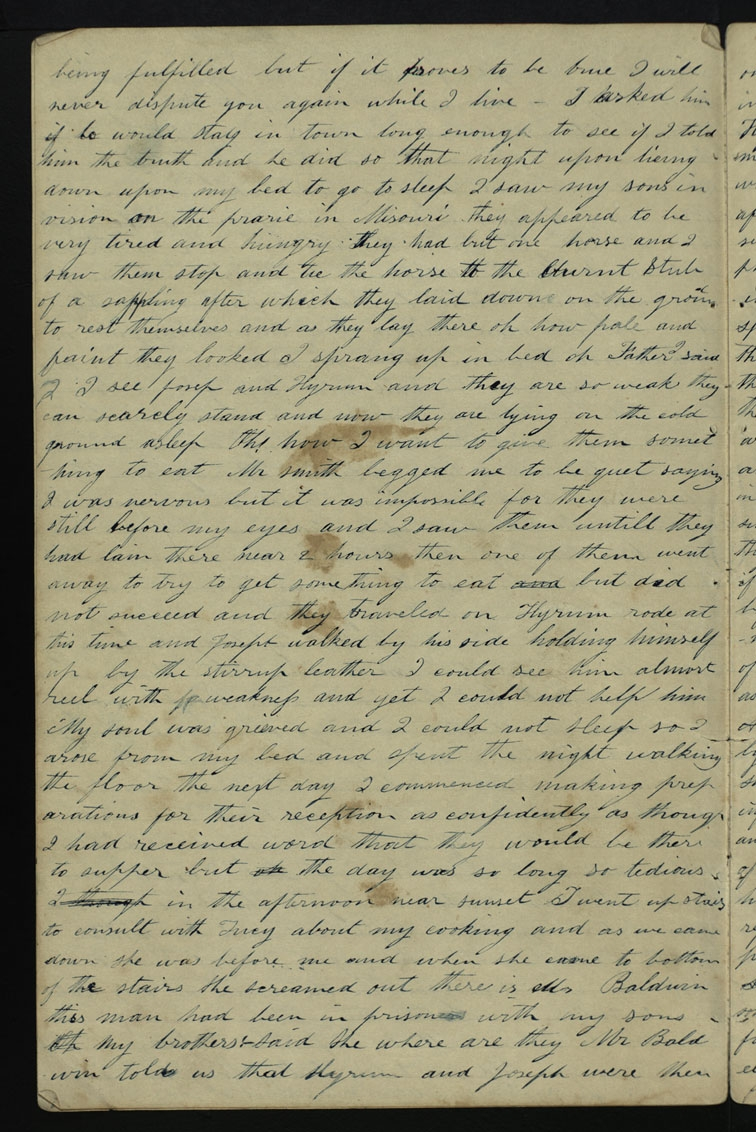 being fulfilled but if it proves to be true I will
never dispute you again while I live - I asked him
if he would stay in town long enough to see if I told
him the truth and he did so that night upon lieing
down upon my bed to go to sleep I saw my sons in
vision on the prarie in Misouri they appeared to be
very tired and hungry they had but one horse and I
saw them stop and tie the horse to the burnt Stub
of a sappling after which they laid down on the groun
to rest themselves and as they lay there oh how pale and
faint they looked I sprang up in bed oh Father said
I I see Josep and Hyrum and they are so weak they
can scarcely stand and now they are lying on the cold
ground asleep Oh! how I want to give them somet
hing to eat Mr smith begged me to be quet saying
I was nervous but it was impossible for they were
still before my eyes and I saw them untill they
had lain there near 2 hours then one of them went
away to try to get something to eat and but did
not succeed and they traveled on Hyrum rode at
this time and Joseph walked by his side holding himself
up by the stirrup leather I could see him almost
reel with weakness and yet I could not help him
My soul was grieved and I could not sleep so I
arose from my bed and spent the night walking
the floor the next day I commenced making prep
arations for their reception as confidently as though
I had received word that they would be there
to supper but the day was so long so tedious
I though in the afternoon near sunset I went up stairs
to consult with Lucy about my cooking and as we came
down she was before me and when she came to bottom
of the stairs she screamed out there is Mr Baldwin
this man had been in prison with my sons
Oh my brothers said she where are they Mr Bald
win told us that Hyrum and Joseph were then